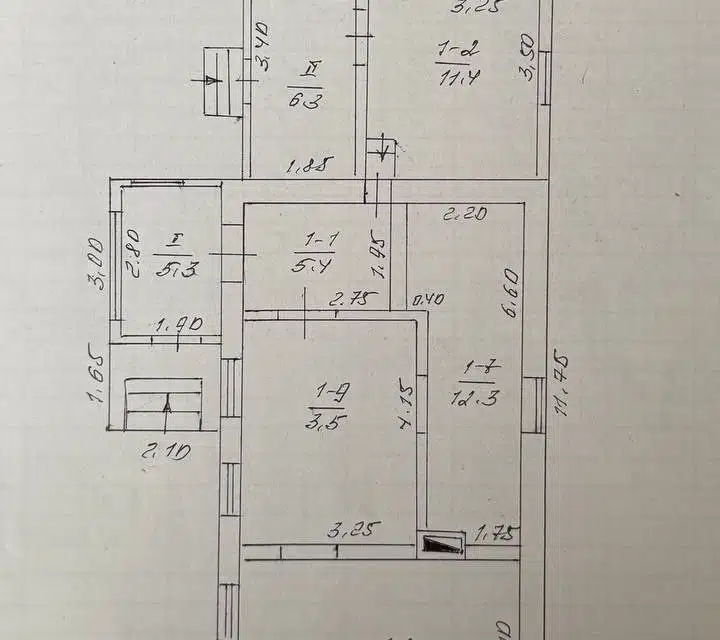 3,25
3,40
II
6.3
1-2
11.4
3,50
1,85
2.20
I
5,3
2.80
3,00
1-1
5.4
1.95
2.75
0.40
6.60
1.90
1.65
2.10
1-9
3,5
4.15
1-7
12.3
11.75
3,25
1,75